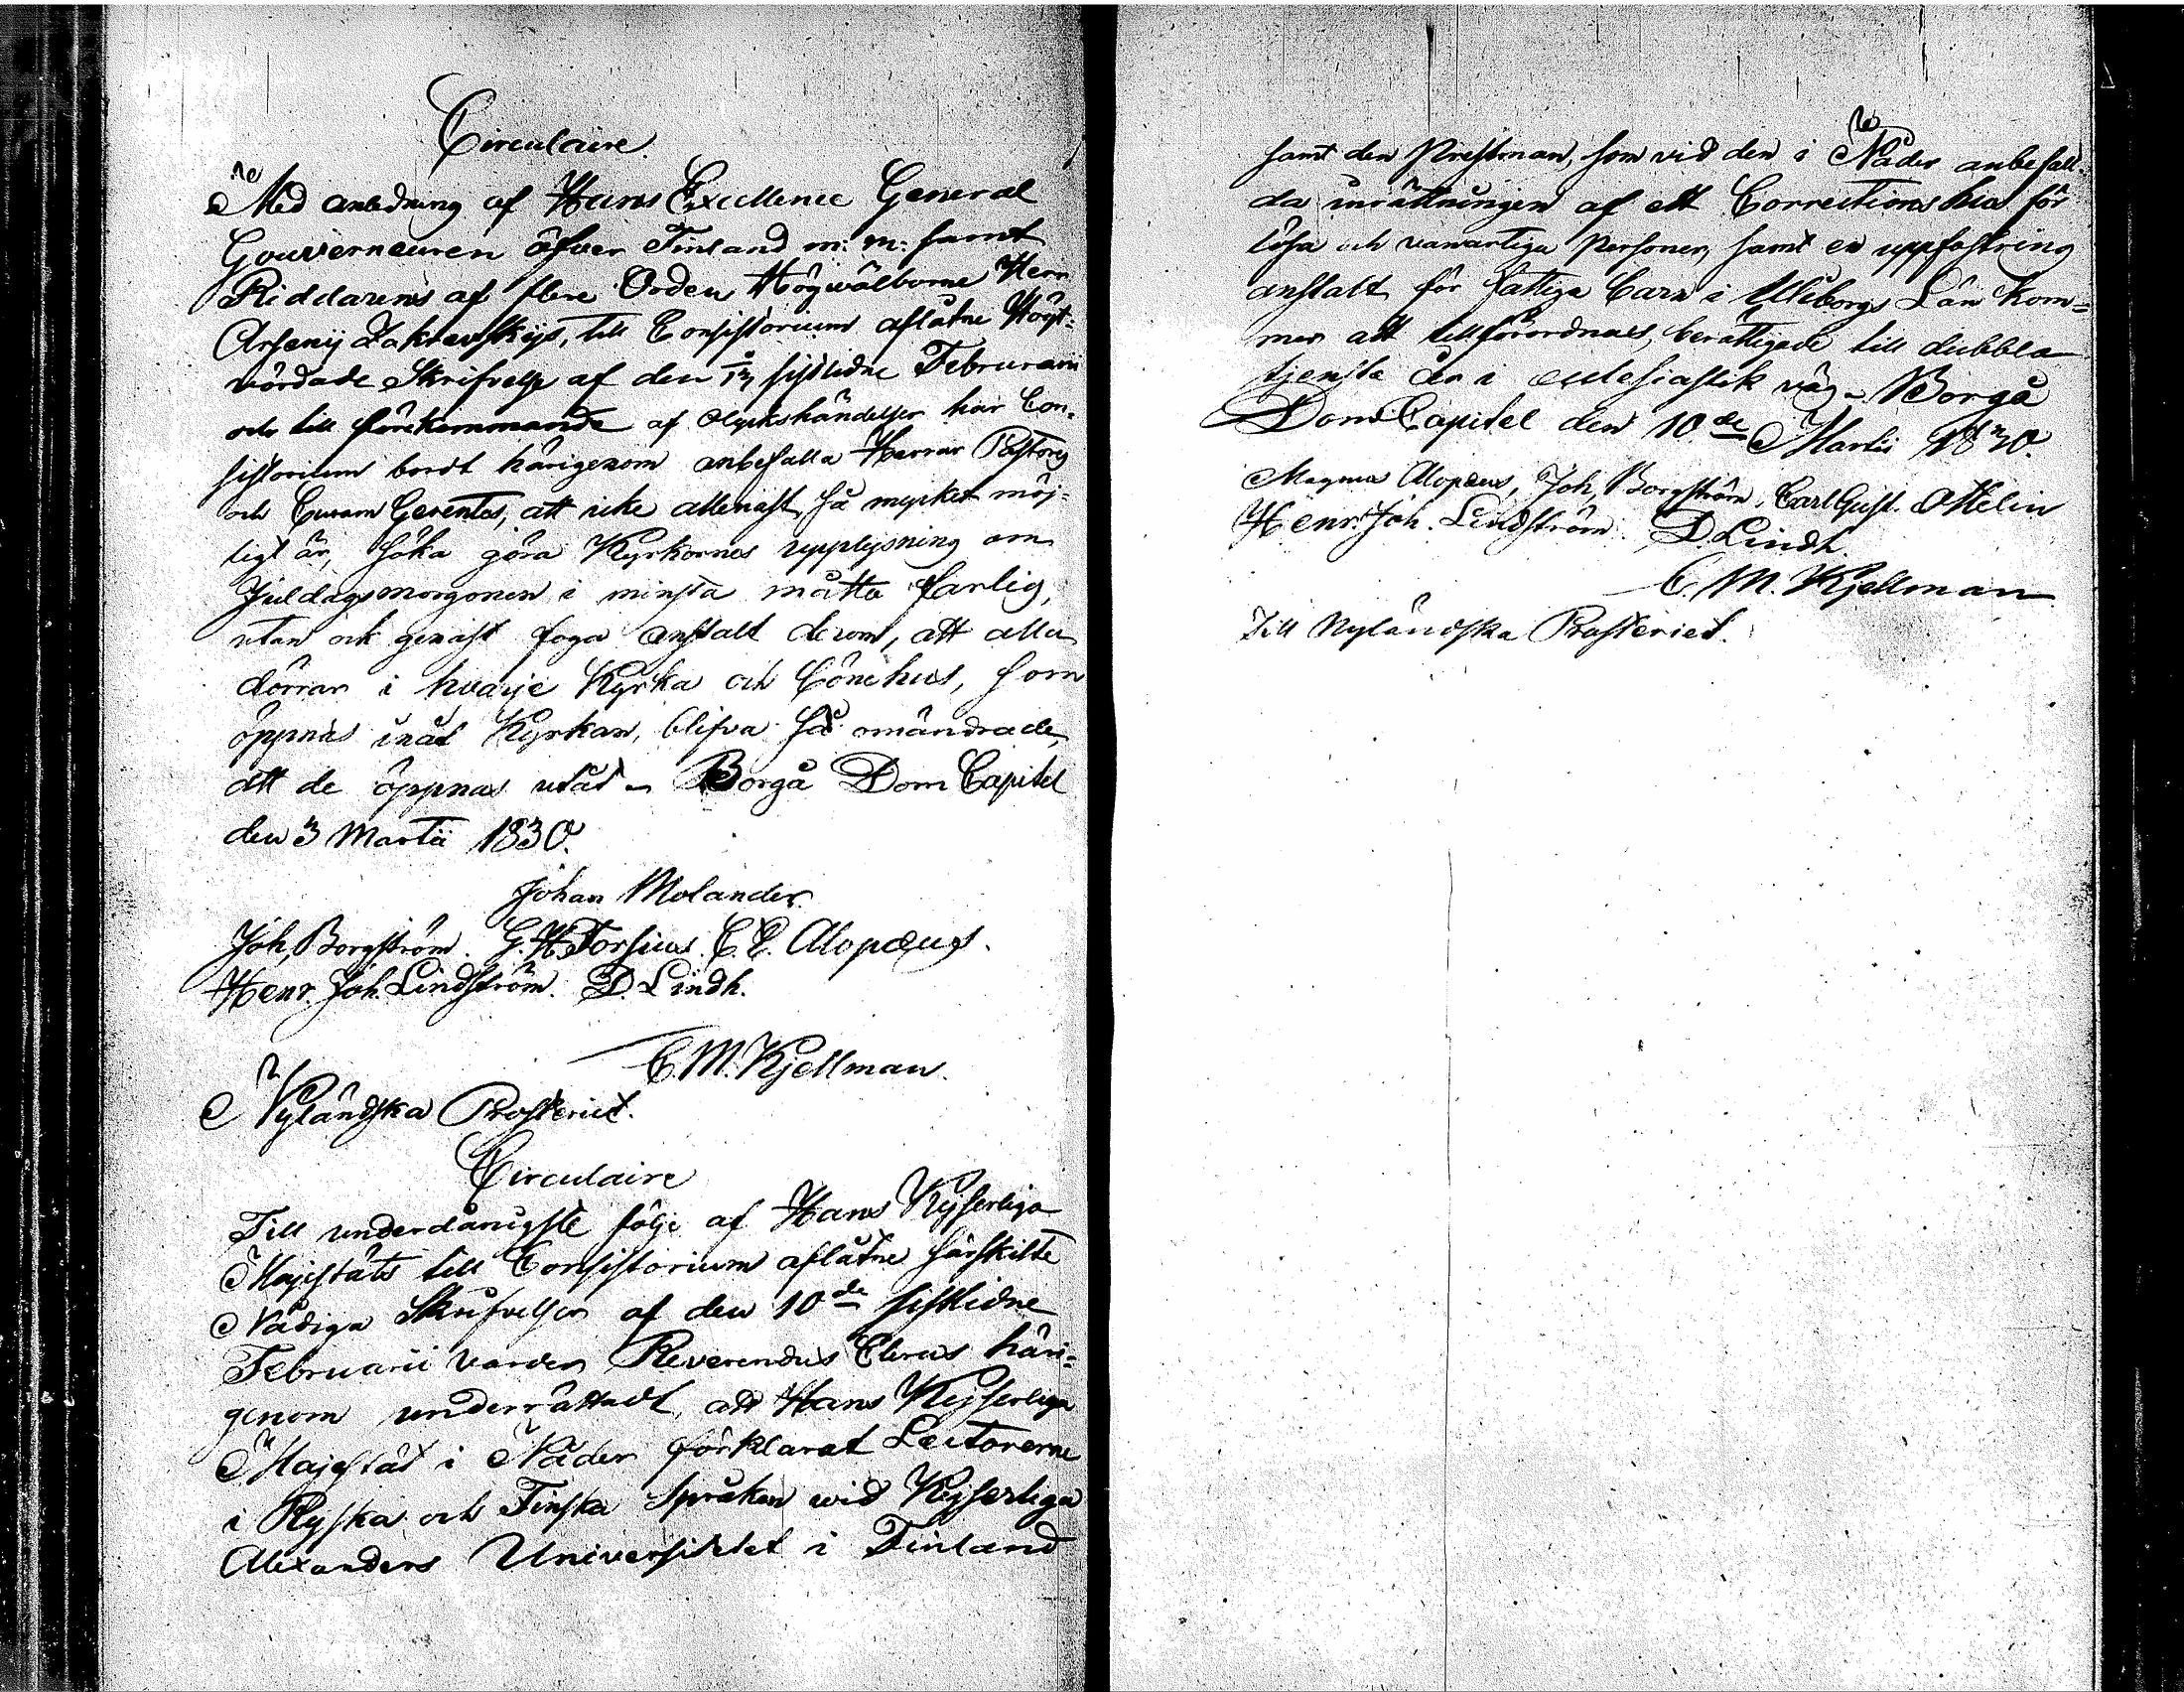 Circulaire.
Med anledning af Hans Excellence General
Gouverneuren öfver Finland m: m: samt
Riddarens af flere Orden Högwälborne Herr
Arsenij Zakrewskijs, till Consistorium aflåtne Högt-
vördade Skrifvelse af den sistledne Februarii
och till förekommande af olyckshändelser har Con-
sistorium bordt härigenom anbefalla Herrar Pastorer
och Curam Gerentes, att icke allenast, så mycket möj-
ligt är, söka göra Kyrkornes upplysning om
Juldagsmorgonen i minsta måtto farlig,
utan ock genast foga anstalt derom, att alla
dörrar i hvarje Kyrka och Bönehus, som
öppnas inåt Kyrkan, blifva så omändrade,
att de öppnas utåt - Borgå Dom Capitel
den 3 Martii 1830.
Johan Molander.
Joh, Borgström. G. H Forsius. C. E. Alopæus.
Henr. Joh. Lindström. D. Lindh.
C. M. Kjellman.
Nyländska Prosteriet.
Circulaire
Till underdånigste följe af Hans Kejserliga
Majestäts till Consistorium aflåtne särskilte
Nådiga Skrifvelser af den 10de sistledne
Februarii varder Reverendus Clerus häri-
genom underrättadt, att Hans Kejserliga
Majestät i Nåder förklarat Lectorerne
i Ryska och Finska Språken wid Kejserliga
Alexanders Universitetet i Finland
samt den Prestman, som vid den i Nåder anbefall-
da inrättningen af ett Corrections hus för
lösa och vanartiga personer, samt en uppfostrings
anstalt för fattiga barn i Uleåborgs Län kom-
mer att tillförordnas, berättigade till dubbla
tjenste år i ecclesiastik väg - Borgå
Dom Capitel den 10de Martii 1830.
Magnus Alopæus, Joh, Borgström, Carl Gust. Ottelin
Henr. Joh. Lindström. D. Lindh.
C. M. Kjellman
Till Nyländska Prosteriet.